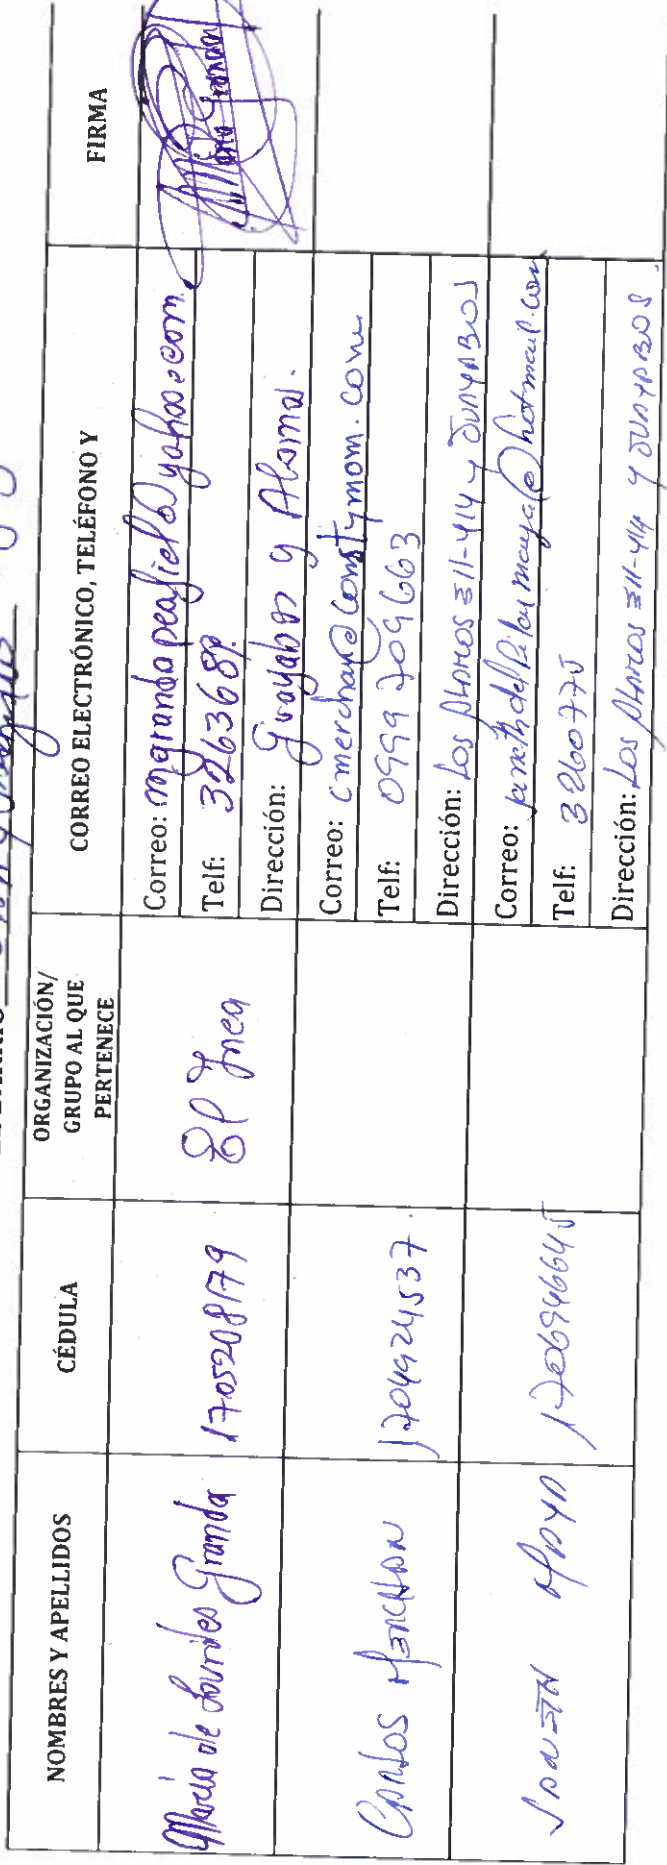 NOMBRES Y APELLIDOS
CÉDULA
ORGANIZACIÓN/
GRUPO AL QUE
PERTENECE
CORREO ELECTRÓNICO, TELÉFONO Y
FIRMA
María de Lourdes Granda
1705208179
El Inca
Correo: mgrandapeafiel@yahoo.com.
Telf: 3263689
Dirección: Guayabos y Alamos.
María Granda
CARLOS MERCHAN
1704924537.
Correo: cmerchan@constymom.com
Telf: 0999 709 663
Dirección: Los ALAMOS E11-414 y GUAYABOS
JANETH MAYA
1706946645
Correo: janethdelpilarmaya@hotmail.com
Telf: 3260775
Dirección: Los ALAMOS E11-414 y GUAYABOS